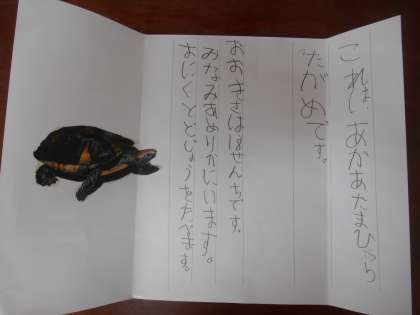 これは、あかあたまひら
たがめです。
おおきさは18せんちです。
みなみあめりかにいます。
おにくとどじょうをたべます。